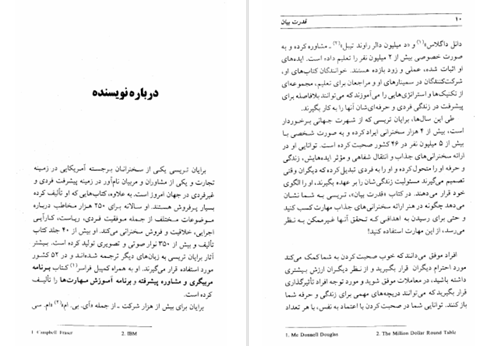 ۱۰
قدرت بیان
دانل داگلاس»(۱) و «د میلیون دالر راوند تیبل»(۲) ـ مشاوره کرده و به
صورت خصوصی بیش از ۲ میلیون نفر را تعلیم داده است. ایده‌های
او اثبات شده، عملی و زود بازده هستند. خوانندگان کتاب‌های او،
شرکت‌کنندگان در سمینارهای او و مراجعان برای تعلیم، مجموعه‌ای
از تکنیک‌ها و استراتژی‌هایی را می‌آموزند که می‌توانند بلافاصله برای
پیشرفت در زندگی فردی و حرفه‌ای‌شان آنها را به کار بگیرند.
طی این سال‌ها، برایان تریسی که از شهرت جهانی برخوردار
است، بیش از ۴ هزار سخنرانی ایراد کرده و به صورت شخصی با
بیش از ۵ میلیون نفر در ۴۶ کشور صحبت کرده است. توانایی او در
ارائه سخنرانی‌های جذاب و انتقال شفاهی و مؤثر ایده‌هایش، زندگی
و حرفه او را متحول کرده و او را به فردی تبدیل کرده که دیگران وقتی
تصمیم می‌گیرند مسئولیت زندگی‌شان را بر عهده بگیرند، او را الگوی
خود قرار می‌دهند. در کتاب «قدرت بیان»، تریسی به شما نشان
می‌دهد چگونه در هنر ارائه سخنرانی‌های جذاب مهارت کسب کنید
و حتی برای رسیدن به اهدافی که تحقق آنها غیرممکن به نظر
می‌رسد، از این مهارت استفاده کنید!
افراد موفق می‌دانند که خوب صحبت کردن به شما کمک می‌کند
مورد احترام دیگران قرار بگیرید و از نظر دیگران ارزش بیشتری
داشته باشید، در معاملات موفق شوید و مورد توجه افراد تأثیرگذاری
قرار بگیرید که می‌توانند دریچه‌های مهمی برای رشد و ترقی به روی
شما باز کنند. توانایی شما در صحبت کردن با اعتماد به نفس، با هر تعداد
1. Mc Donnell Douglas
2. The Million Dollar Round Table
درباره نویسنده
برایان تریسی یکی از سخنرانان برجسته آمریکایی در زمینه
تجارت و یکی از مشاوران و مربیان نام‌آور در زمینه پیشرفت فردی و
غیرفردی در جهان امروز است. به علاوه، کتاب‌هایی که او تألیف کرده
بسیار پرفروش هستند. او سالانه برای ۲۵۰ هزار مخاطب درباره
موضوعات مختلف از جمله موفقیت فردی، ریاست، کارآیی
اجرایی، خلاقیت و فروش سخنرانی می‌کند. او بیش از ۴۰ جلد کتاب
تألیف و بیش از ۳۵۰ نوار صوتی و تصویری تولید کرده است. بیشتر
آثار برایان تریسی به زبان‌های دیگر ترجمه شده‌اند و در ۵۲ کشور
مورد استفاده قرار می‌گیرند. او به همراه کمپبل فراسر(۱) کتاب برنامه
مربیگری و مشاوره پیشرفته و برنامه آموزش مهارت‌ها را تألیف
کرده است.
برایان برای بیش از هزار شرکت ـ از جمله «آی. بی. ام»(۲) «ام. سی
1. Campbell Fraser
2. IBM